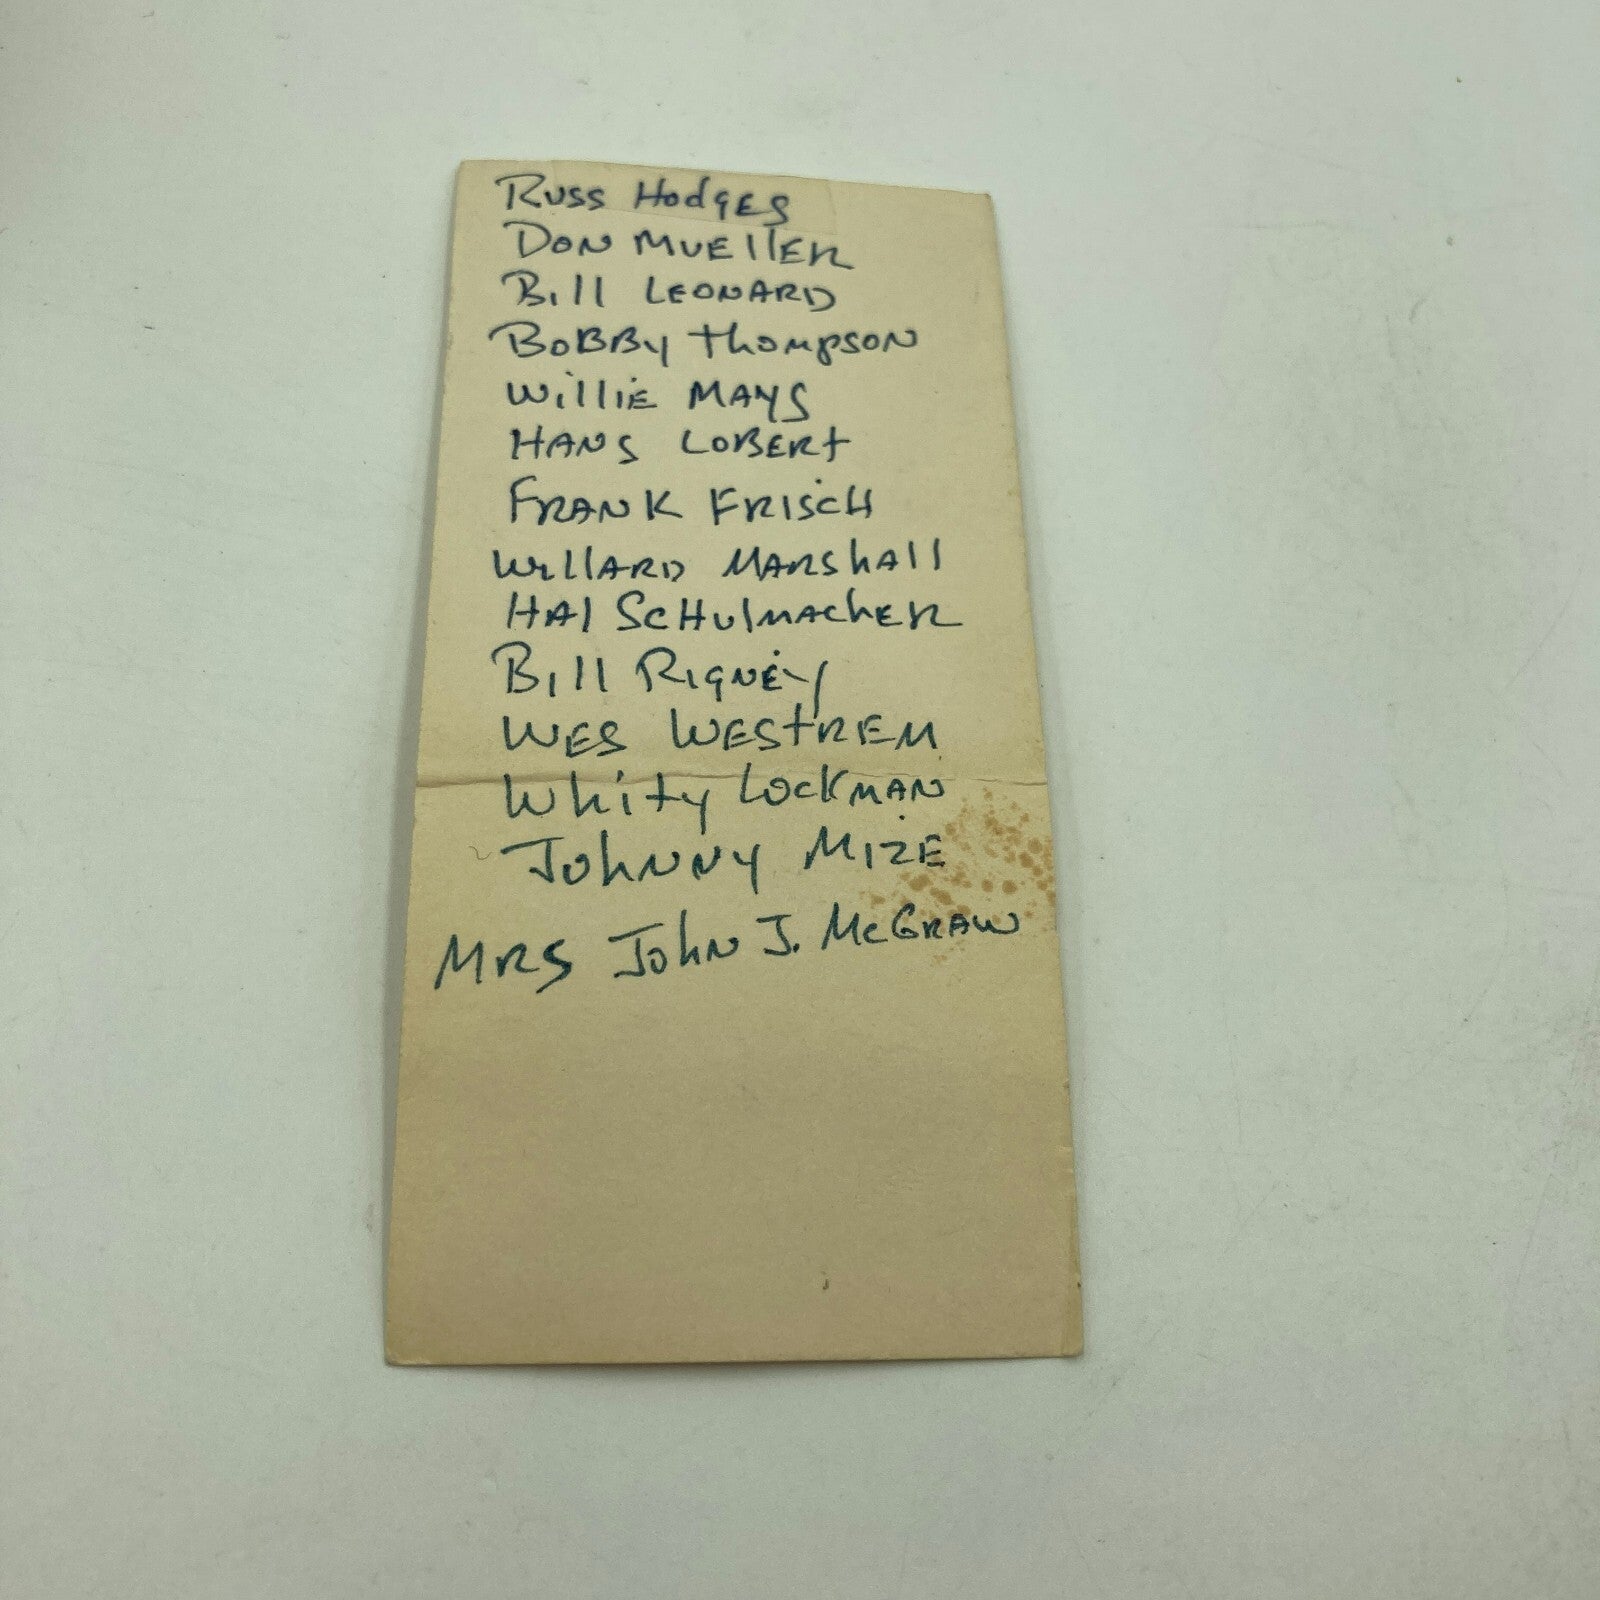 Russ Hodges
Don Mueller
Bill Leonard
Bobby Thompson
Willie Mays
Hans Lobert
Frank Frisch
Willard Marshall
Hal Schulmacher
Bill Rigney
Wes Westrem
Whity Lockman
Johnny Mize
Mrs John J. McGraw